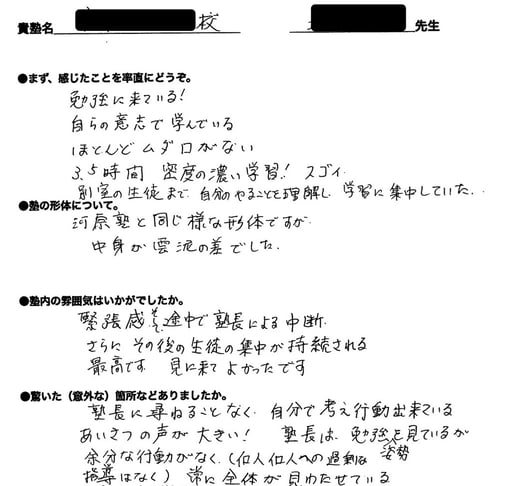 貴塾名 校 先生
●まず、感じたことを率直にどうぞ。
勉強に来ている!
自らの意志で学んでいる
ほとんどムダ口がない
3.5時間 密度の濃い学習! スゴイ
別室の生徒まで 自分のやることを理解し 学習に集中していた.
●塾の形体について。
河原塾と同じ様な形体ですが
中身が雲泥の差でした.
●塾内の雰囲気はいかがでしたか。
緊張感 途中で塾長による中断.
さらに その後の生徒の集中が持続される
最高です 見に来てよかったです
●驚いた(意外な)箇所などありましたか。
塾長に尋ねることなく 自分で考え行動出来ている
あいさつの声が大きい! 塾長は 勉強を見ているが
姿勢
余分な行動がなく、(個人個人への過剰な
指導はなく) 常に全体が見わたせている